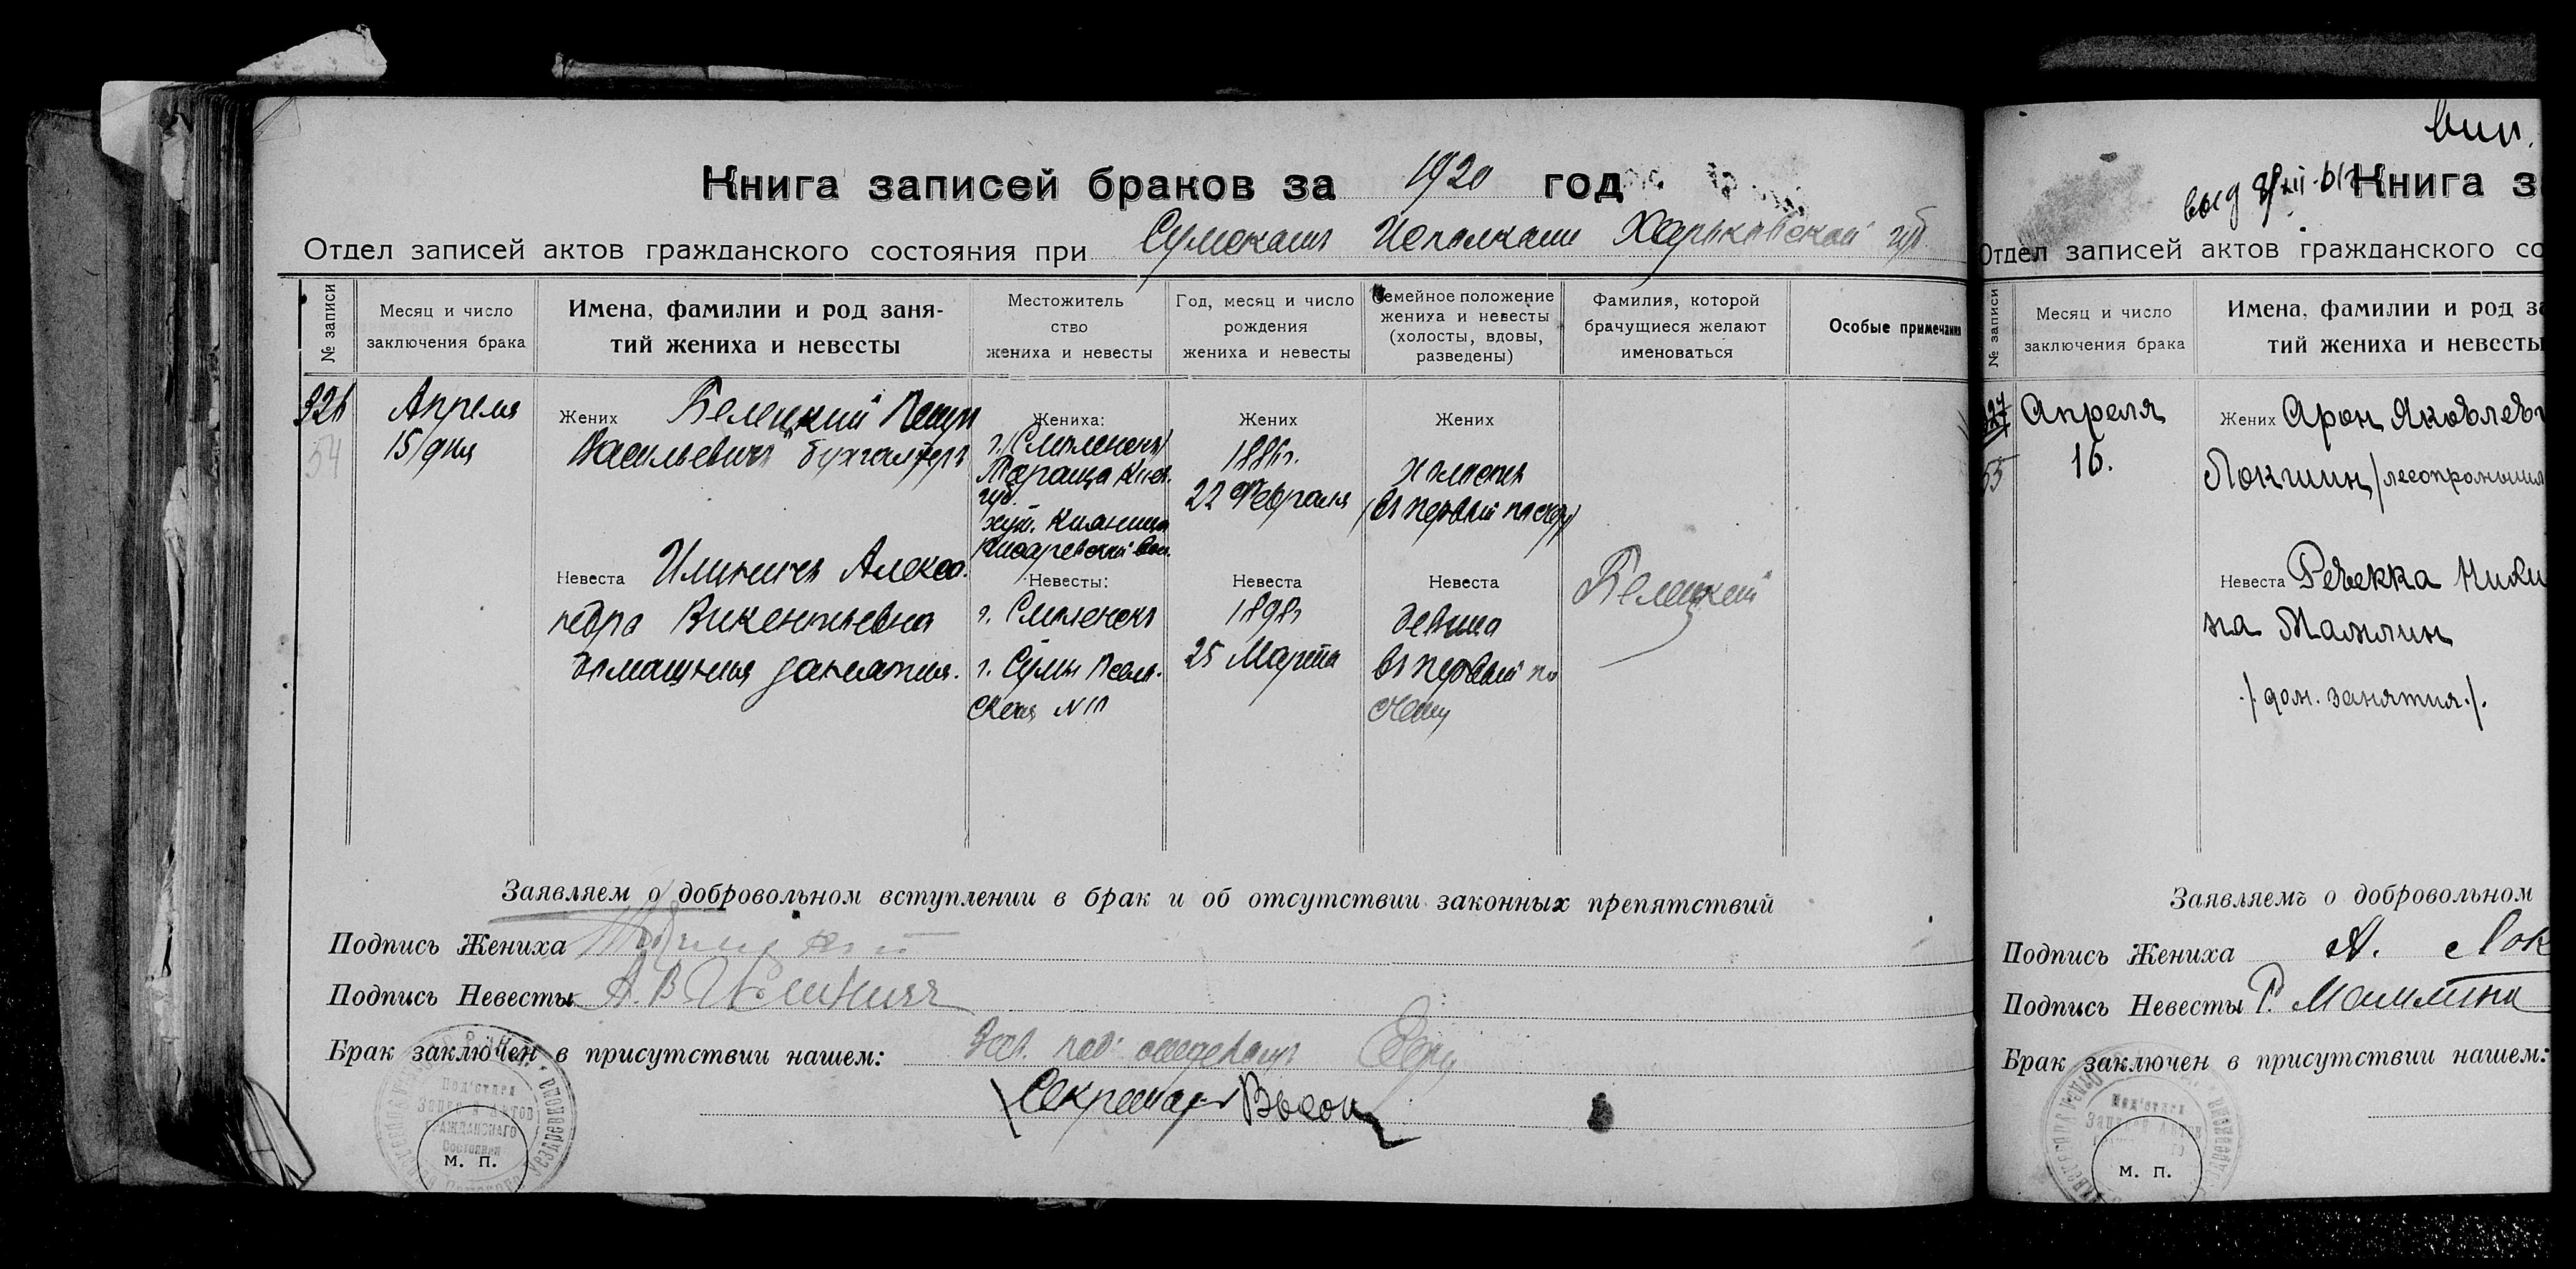 Книга записей браков за 1920 год
Отдел записей актов гражданского состояния при Сумском Исполкоме Харьковской губ.
№ записи
Месяц и число
заключения брака
Имена, фамилии и род заня-
тий жениха и невесты
Местожитель
ство
жениха и невесты
Год, месяц и число
рождения
жениха и невесты
Семейное положение
жениха и невесты
(холосты, вдовы,
разведены)
Фамилия, которой
брачущиеся желают
именоваться
Особые примечания
326
54
Апреля
15 дня
Жених Белецкий Петр
Васильевич бухгалтер
Жениха:
г. Смоленск
Тараща Киев.
губ.
хут. Кияница
Жених
1886 г.
22 Февраля
Жених
холост
(в первый по счету)
Невеста Илинич Алекса.
ндра Викентьевна
домашния занятия.
Невесты:
г. Смоленск
г. Сумы Псель.
ская №
Невеста
1898 г
25 Марта
Невеста
девица
в первый по
счету
Белецкий
Заявляем о добровольном вступлении в брак и об отсутствии законных препятствий
Подпись Жениха
Подпись Невесты А. В. Илинич
Брак заключен в присутствии нашем: Зав. под отделом
Секретарь
Под'отдел
Записей Актов
Гражданскаго
Состояния
м. п.
выд
Книга з
Отдел записей актов гражданского со
№ записи
Месяц и число
заключения брака
Имена, фамилии и род за
тий жениха и невесты
327
55
Апреля
16.
Жених Арон Яковлев
Локшин /лесопромышл
Невеста Ревекка
на
./ дом. занятия./.
Заявляемъ о добровольном
Подпись Жениха А. Лок
Подпись Невесты Р.
Брак заключен в присутствии нашем:
Под'отдел
Записей Актов
м. п.